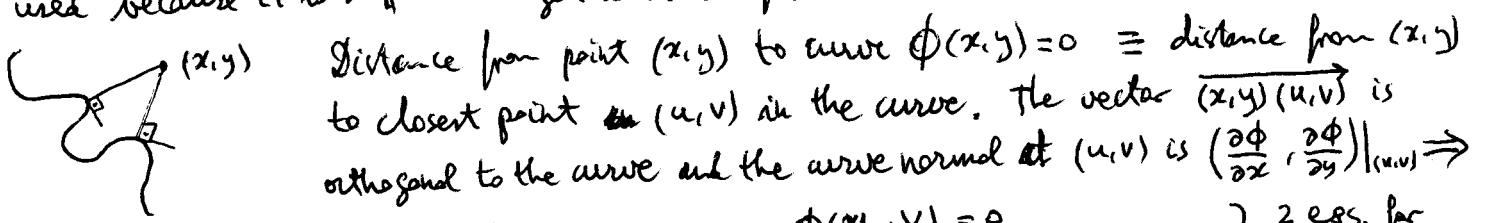 used because it
(x,y) Distance from point (x,y) to curve ϕ(x,y)=0 ≡ distance from (x,y)
to closest point (u,v) in the curve. The vector (x,y)(u,v) is
orthogonal to the curve and the curve normal at (u,v) is (∂ϕ/∂x, ∂ϕ/∂y)|(u,v) ⇒
2 eqs. for